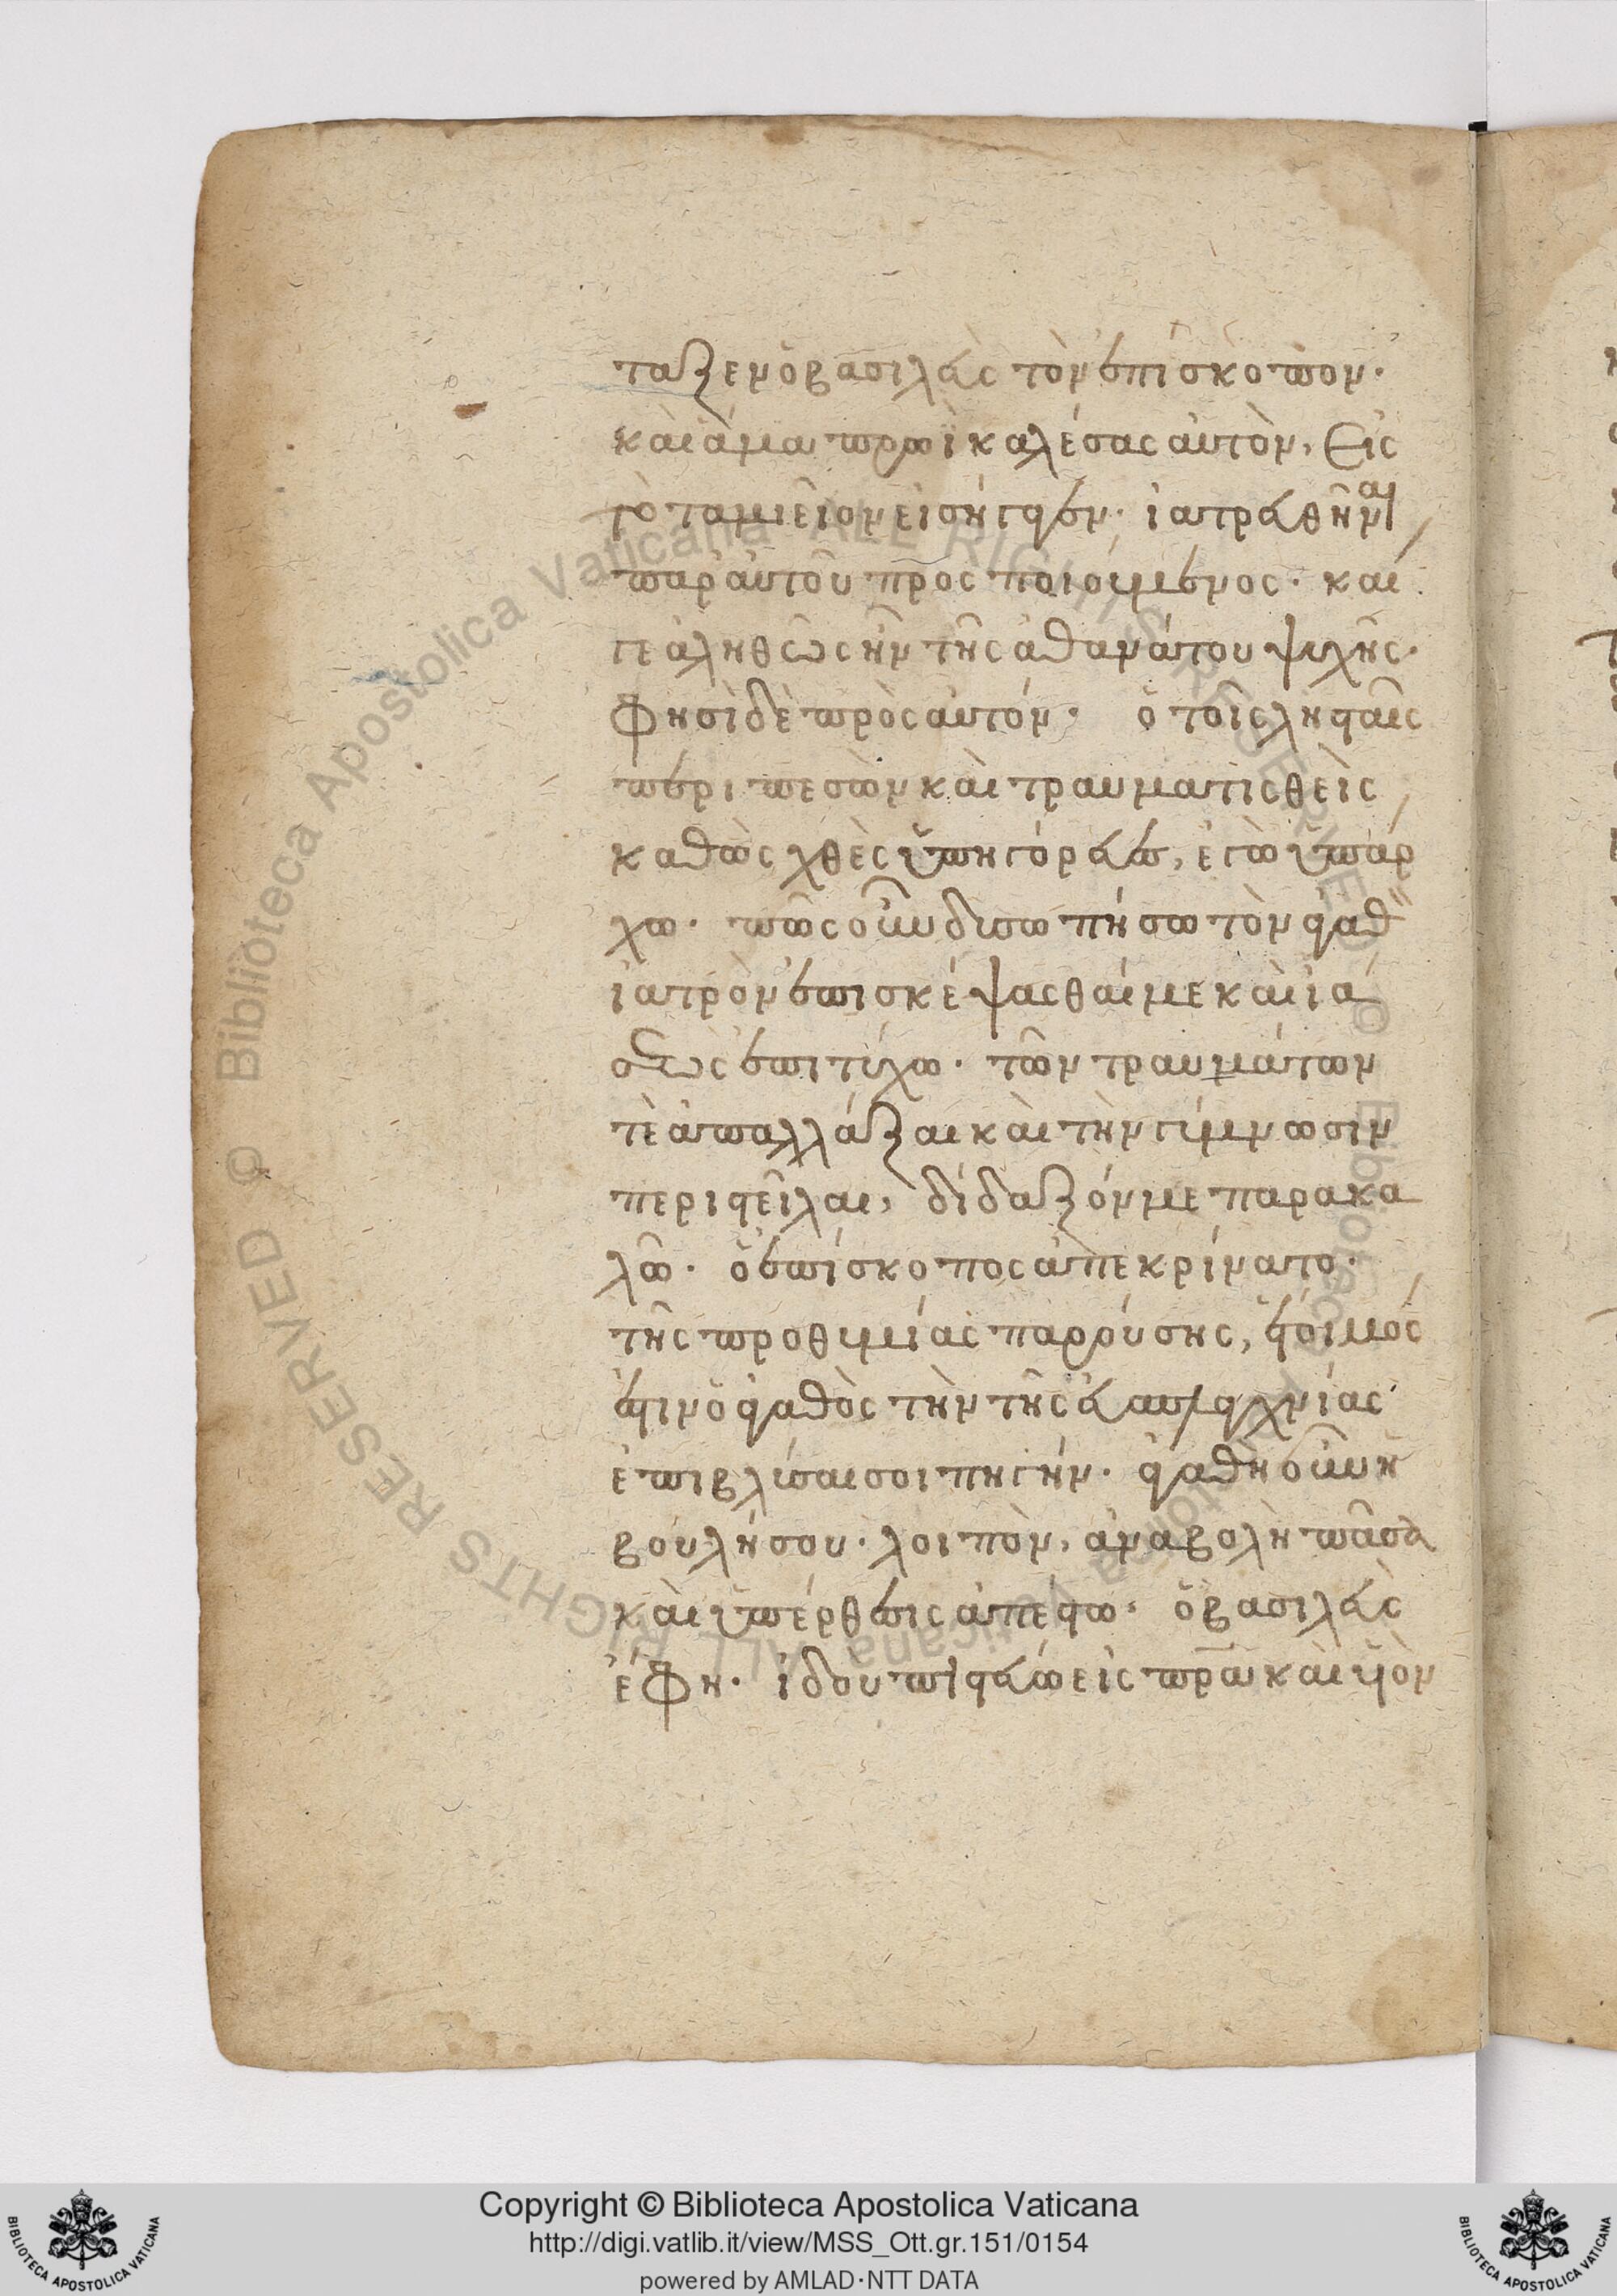 ταξεν ὁ βασιλεὺς τὸν ἐπίσκοπον·
καὶ ἅμα πρωῒ καλέσας αὐτὸν, εἰς
τὸ ταμιεῖον εἰσήγαγεν· ἰατρευθῆναι
παρ' αὐτοῦ προςποιούμενος· καί
γε ἀληθῶς ἦν τῆς ἀθανάτου ψυχῆς·
Φησὶ δὲ πρὸς αὐτόν· ὁ τοῖς λησταῖς
περιπεσὼν καὶ τραυματισθεὶς
καθὼς χθὲς ὑπηγόρευες, ἐγὼ ὑπάρ
χω· πῶς οὖν δυσωπήσω τὸν ἀγαθὸν
ἰατρὸν ἐπισκέψασθαί με καὶ ἰά
σεως ἐπιτύχω· τῶν τραυμάτων
τὲ ἀπαλλάξαι καὶ τὴν γύμνωσιν
περιστεῖλαι, δίδαξόν με παρακα
λῶ· ὁ ἐπίσκοπος ἀπεκρίνατο·
τῆς προθυμίας παρούσης, ἕτοιμός
ἐστιν ὁ ἀγαθὸς τὴν τῆς εὐσπλαγχνίας
ἐπιβλύσαι σοι πηγήν· ἀγαθὴ οὖν ἡ
βουλή σου· λοιπὸν, ἀναβολὴ πᾶσα
καὶ ὑπέρθεσις ἀπέστω· ὁ βασιλεὺς
ἔφη· ἰδοὺ πιστεύω εἰς πρα καὶ υἱὸν
Copyright © Biblioteca Apostolica Vaticana
http://digi.vatlib.it/view/MSS_Ott.gr.151/0154
powered by AMLAD·NTT DATA
BIBLIOTECA APOSTOLICA VATICANA
BIBLIOTECA APOSTOLICA VATICANA
© Biblioteca Apostolica Vaticana ALL RIGHTS RESERVED © Biblioteca Apostolica Vaticana ALL RIGHTS RESERVED